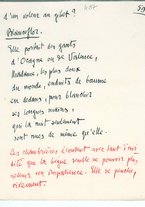 d'un voleur au gibet ?
Blancheflor.
Elle portait des gants
d'Ocagna ou de Valence,
Madame, les plus doux
du monde, enduits de baume
en dedans, pour blanchir
ses longues mains,
que la nuit seulement
sont nues de même qu'elle.
Les chambrières écoutent avec tant d'avi
dité que la bègue semble ne pouvoir plus
retenir son impatience. Elle se penche,